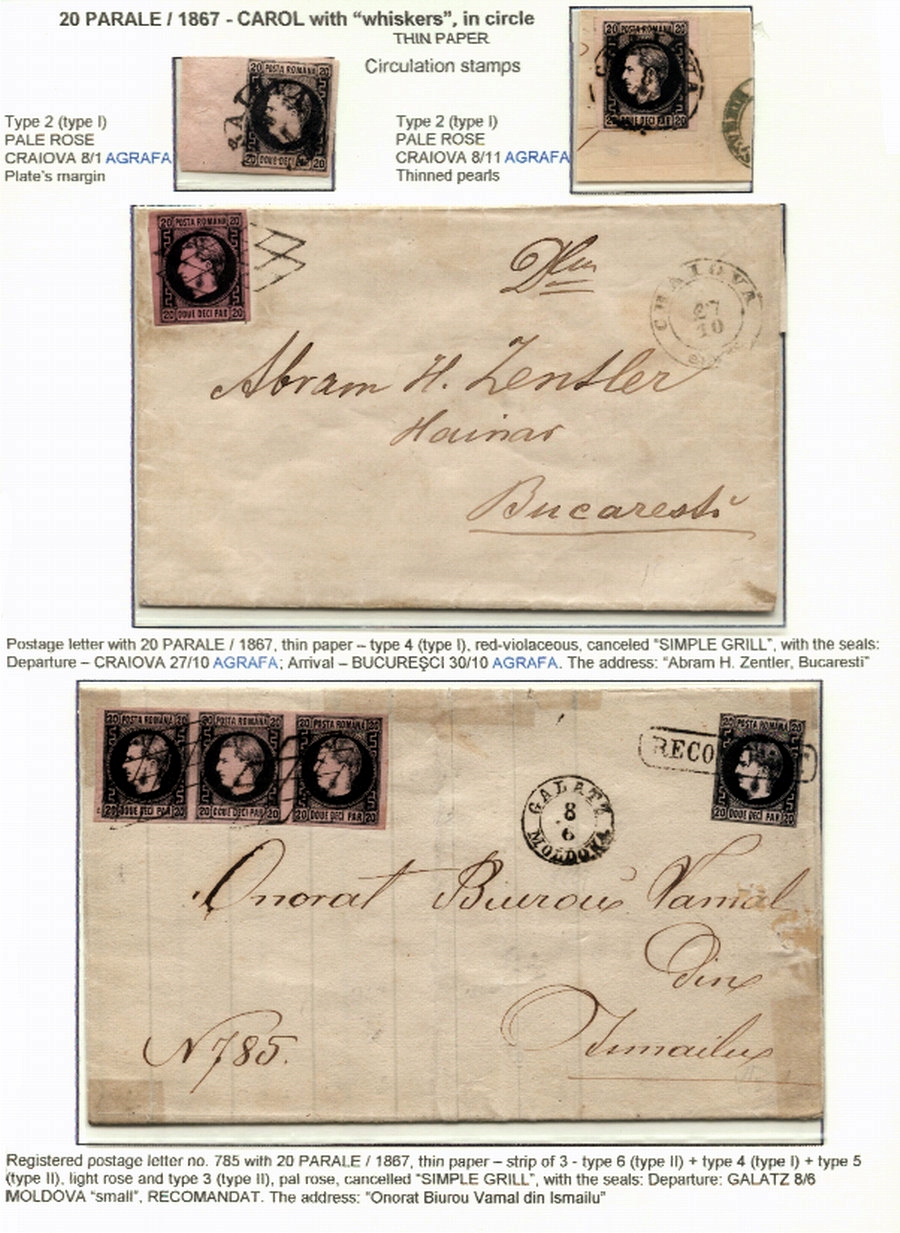 20 PARALE / 1867 - CAROL with "whiskers", in circle
THIN PAPER
Circulation stamps
Type 2 (type I)
PALE ROSE
CRAIOVA 8/1 AGRAFA
Plate's margin
20 POSTA ROMANA 20
20 DOUE DECI PAR 20
Type 2 (type I)
PALE ROSE
CRAIOVA 8/11 AGRAFA
Thinned pearls
20 POSTA ROMANA 20
20 DOUE DECI PAR 20
20 POSTA ROMANA 20
20 DOUE DECI PAR 20
CRAIOVA
27
10
Abram H. Zentler
Hainar
Bucaresti
Postage letter with 20 PARALE / 1867, thin paper – type 4 (type I), red-violaceous, canceled "SIMPLE GRILL", with the seals:
Departure – CRAIOVA 27/10 AGRAFA; Arrival – BUCUREŞCI 30/10 AGRAFA. The address: "Abram H. Zentler, Bucaresti"
20 POSTA ROMANA 20 20 POSTA ROMANA 20 20 POSTA ROMANA 20
20 DOUE DECI PAR 20 20 DOUE DECI PAR 20 20 DOUE DECI PAR 20
GALATZ
8
6
MOLDOVA
RECO
20 POSTA ROMANA 20
20 DOUE DECI PAR 20
Onorat Biuroŭ Vamal
din
Ismailu
N 785.
Registered postage letter no. 785 with 20 PARALE / 1867, thin paper – strip of 3 - type 6 (type II) + type 4 (type I) + type 5
(type II), light rose and type 3 (type II), pal rose, cancelled "SIMPLE GRILL", with the seals: Departure: GALATZ 8/6
MOLDOVA "small", RECOMANDAT. The address: "Onorat Biurou Vamal din Ismailu"